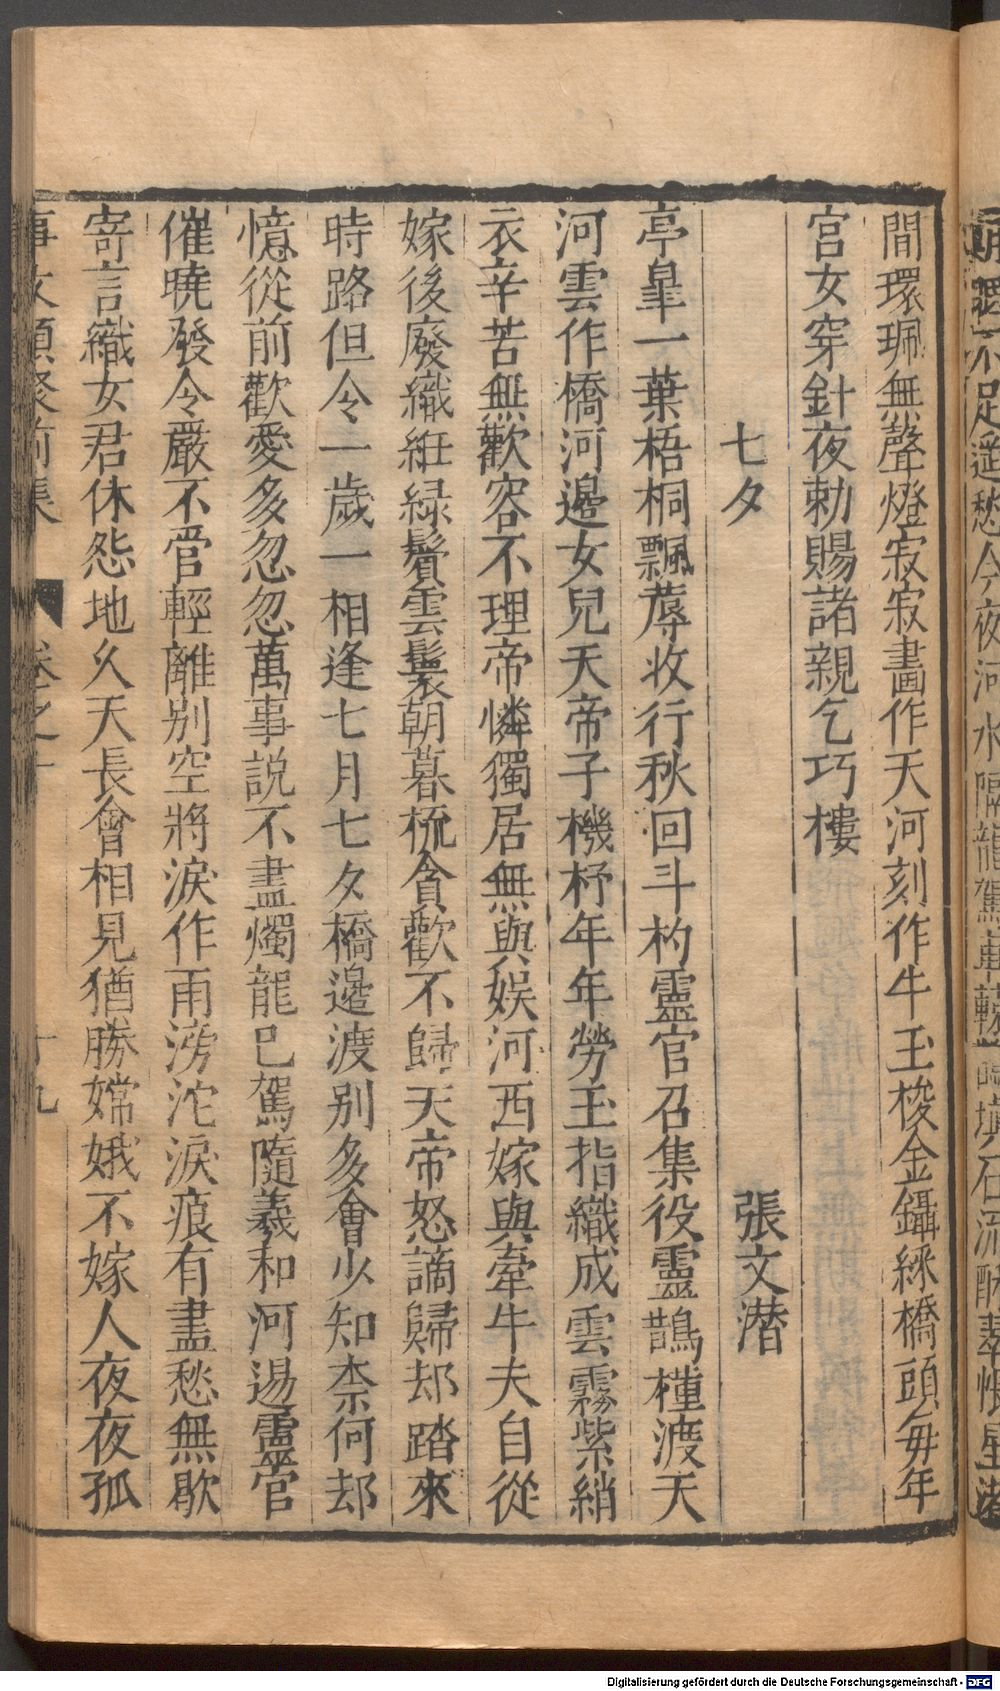 間環珮無聲燈寂寂畫作天河刻作牛玉梭金鑷綵橋頭每年
宫女穿針夜勅賜諸親乞巧樓
七夕 張文潜
亭臯一葉梧桐飄蓐收行秋回斗杓靈官召集役靈鵲橦渡天
河雲作橋河邊女兒天帝子機杼年年勞玉指織成雲霧紫綃
衣辛苦無歡容不理帝憐獨居無與娱河西嫁與牽牛夫自從
嫁後廢織紝緑鬢雲鬟朝暮梳貪歡不歸天帝怒謫歸却踏來
時路但令一歲一相逢七月七夕橋邊渡别多會少知柰何却
憶從前歡愛多忽忽萬事説不盡燭龍已駕隨羲和河邊靈官
催曉發令嚴不管輕離别空將淚作雨滂沱淚痕有盡愁無歇
寄言織女君休怨地久天長會相見猶勝嫦娥不嫁人夜夜孤
事文類聚前集 卷之十 十九
足遥愁今夜河水隔龍駕車轅
填石流酥翠帳星渚
Digitalisierung gefördert durch die Deutsche Forschungsgemeinschaft - DFG